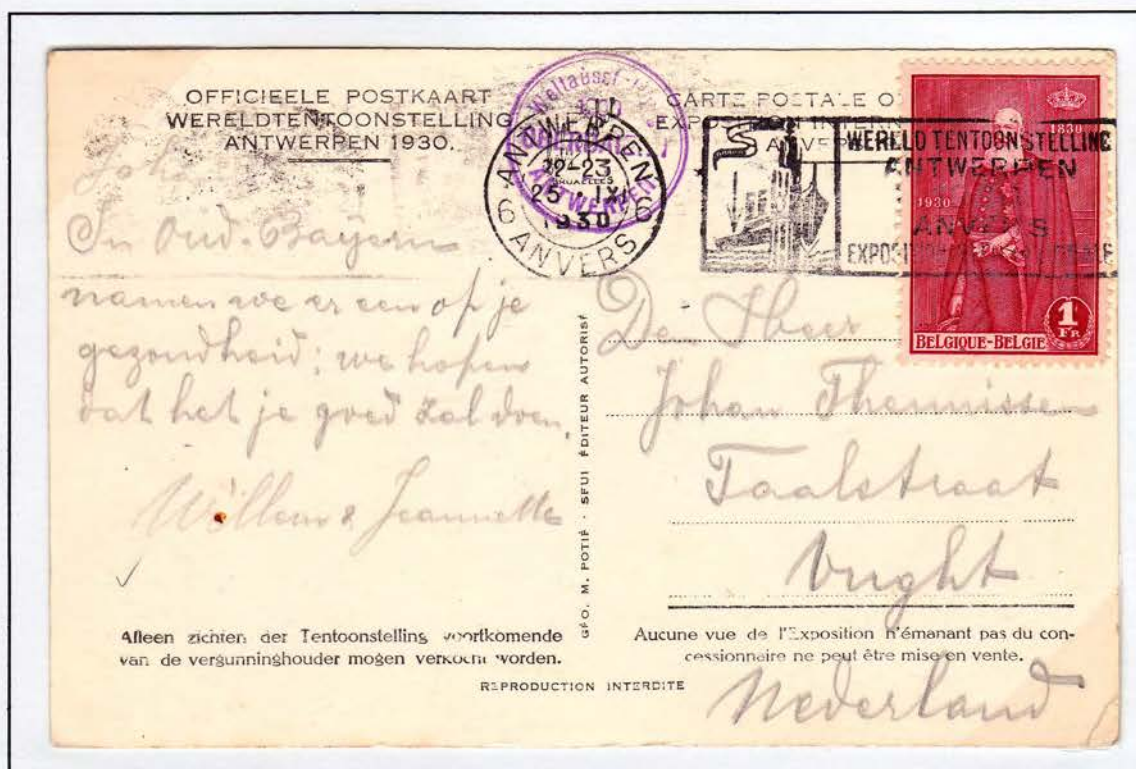 OFFICIEELE POSTKAART
WERELDTENTOONSTELLING
ANTWERPEN 1930.
CARTE POSTALE O
EXPOSITION INTERN
ANVER
Weltausst
OBERBAYERN
ANTWERPEN
ANTWERPEN
22-23
25 IX
1930
6 ANVERS 6
WERELD TENTOONSTELLING
ANTWERPEN
ANVERS
1830
1930
1 FR
BELGIQUE-BELGIE
Joh
In Oud-Bayern
namen we er een op je
gezondheid; we hopen
dat het je goed zal doen.
Willem & Jeannette
De Heer
Johan Theunisse
Taalstraat
Vught
Nederland
GÉO. M. POTIÉ - SEUL ÉDITEUR AUTORISÉ
Alleen zichten der Tentoonstelling voortkomende
van de vergunninghouder mogen verkocht worden.
Aucune vue de l'Exposition n'émanant pas du con-
cessionnaire ne peut être mise en vente.
REPRODUCTION INTERDITE